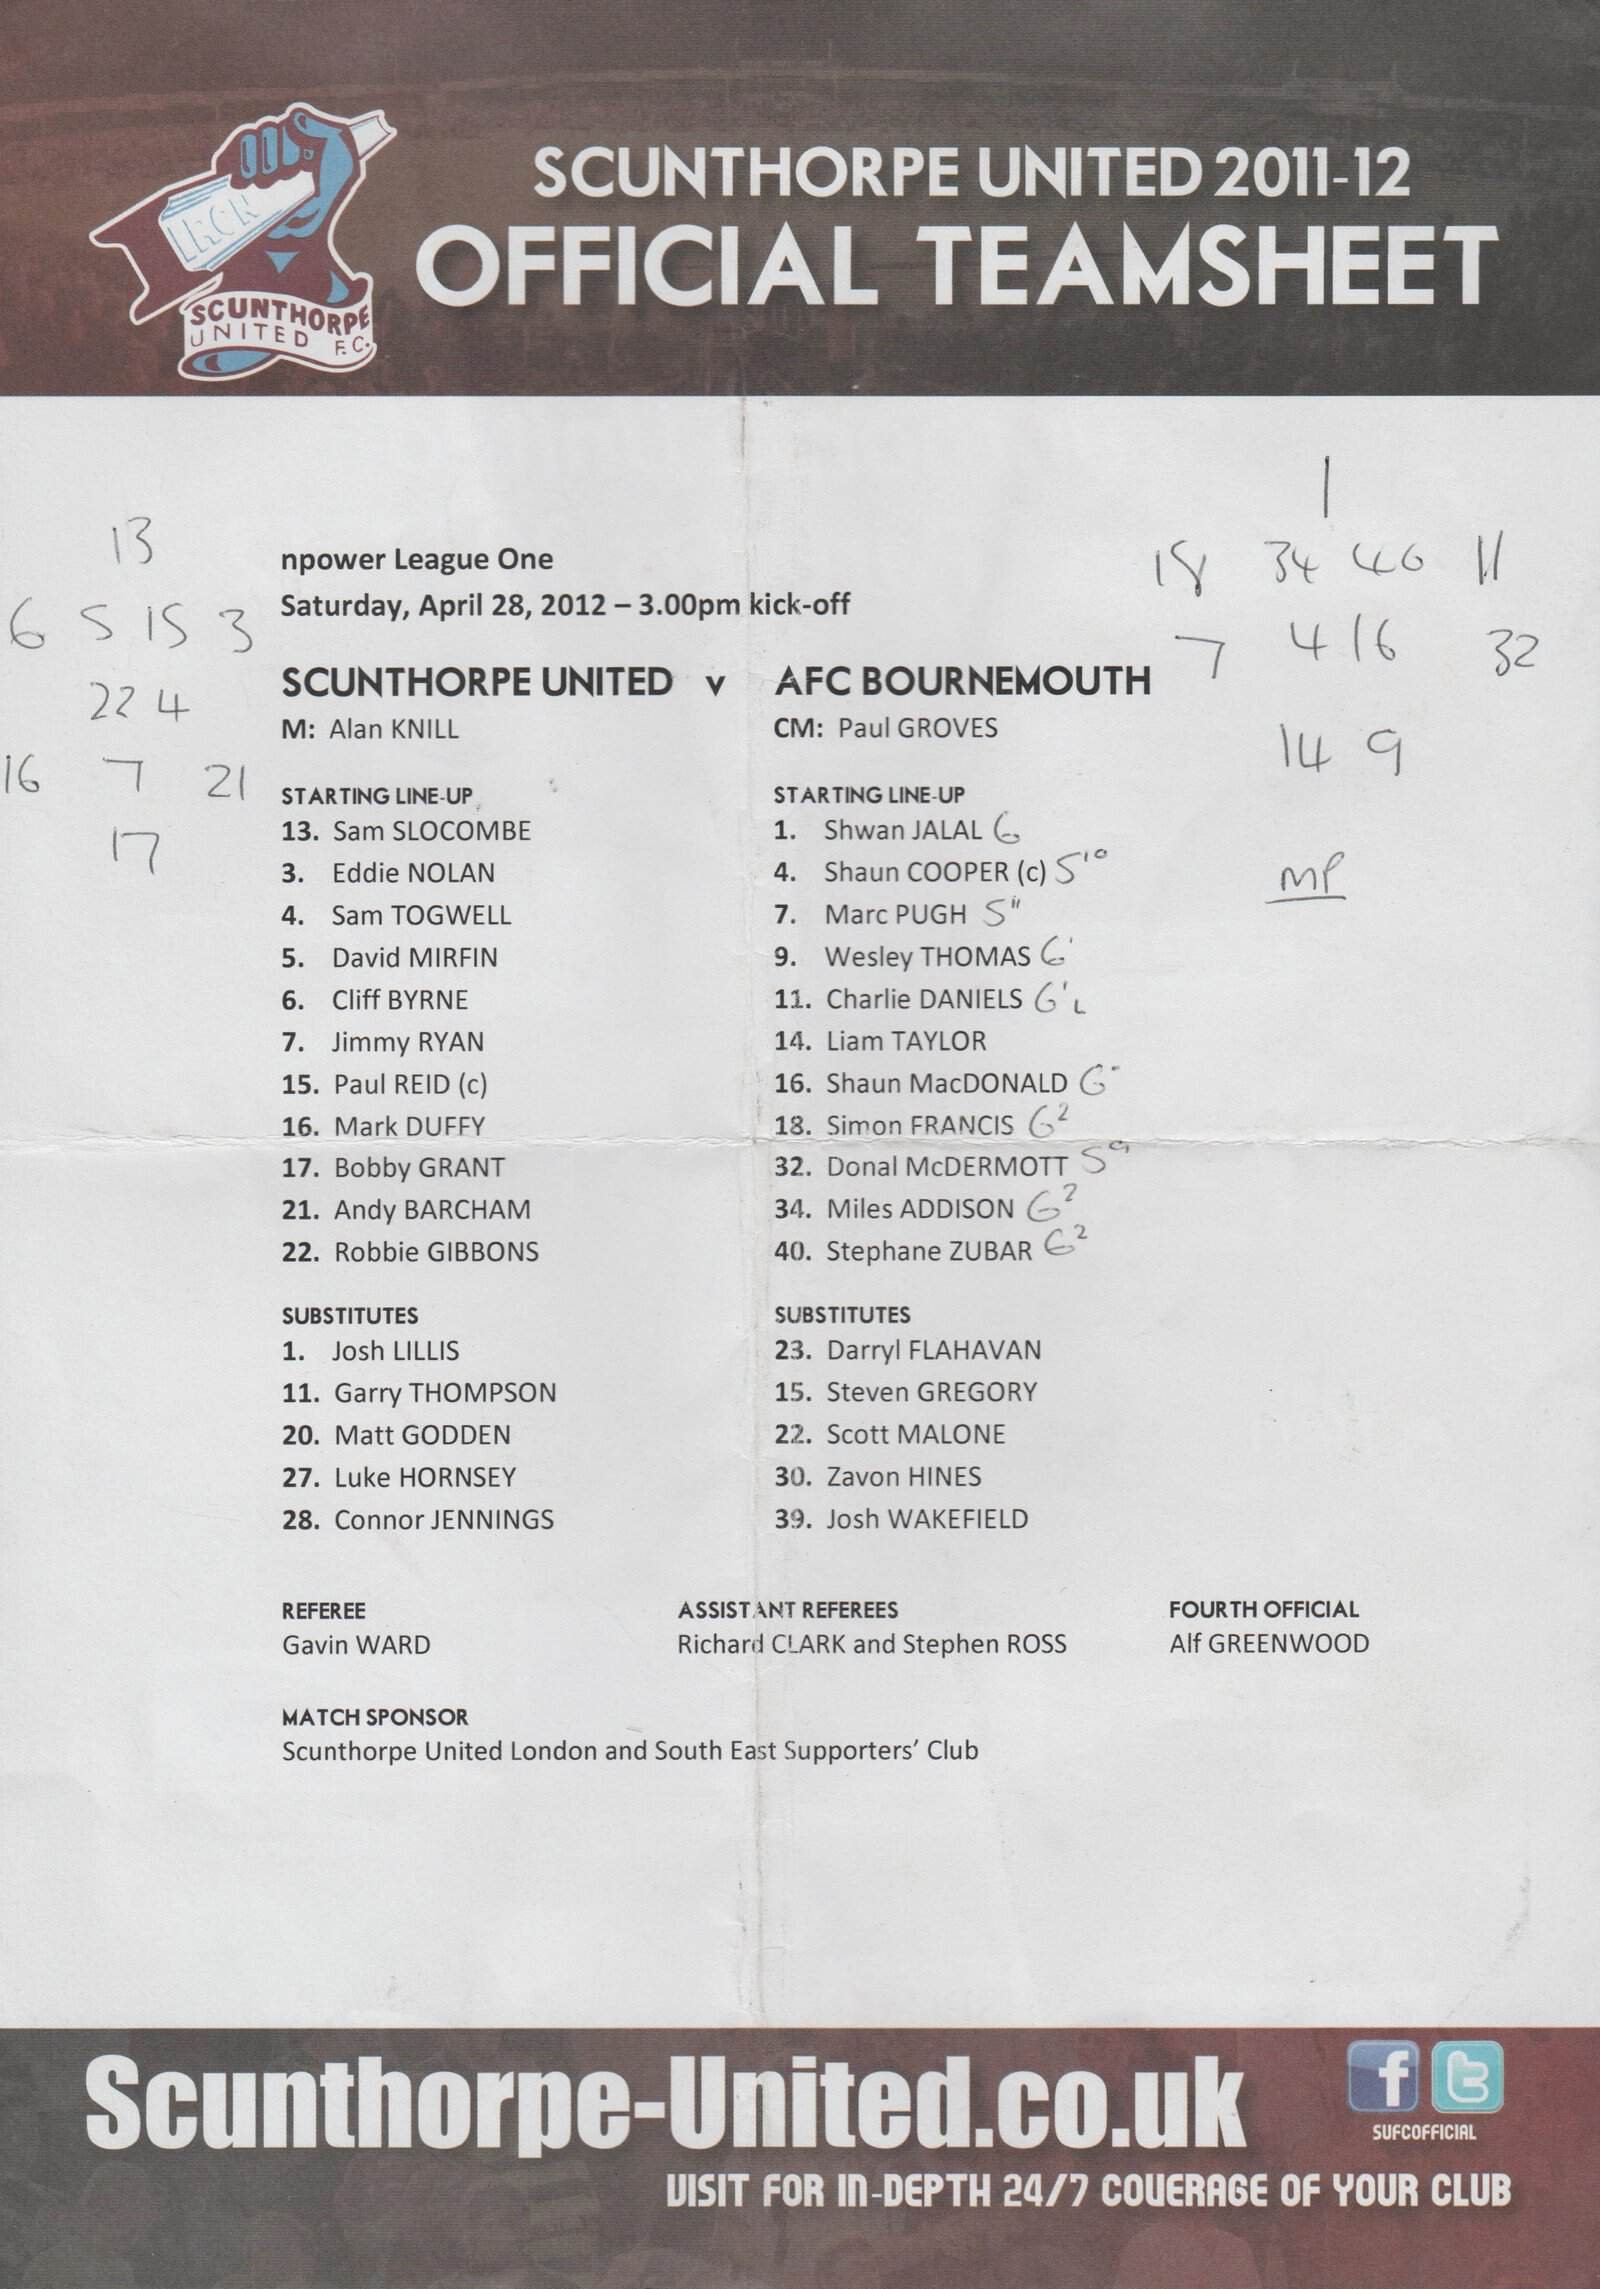 IRON
SCUNTHORPE
UNITED F.C.
SCUNTHORPE UNITED 2011-12
OFFICIAL TEAMSHEET
npower League One
Saturday, April 28, 2012 – 3.00pm kick-off
13
6 5 15 3
22 4
16 7 21
17
1
18 34 40 11
7 4 16 32
14 9
MP
SCUNTHORPE UNITED v AFC BOURNEMOUTH
M: Alan KNILL
CM: Paul GROVES
STARTING LINE-UP
13. Sam SLOCOMBE
3. Eddie NOLAN
4. Sam TOGWELL
5. David MIRFIN
6. Cliff BYRNE
7. Jimmy RYAN
15. Paul REID (c)
16. Mark DUFFY
17. Bobby GRANT
21. Andy BARCHAM
22. Robbie GIBBONS
SUBSTITUTES
1. Josh LILLIS
11. Garry THOMPSON
20. Matt GODDEN
27. Luke HORNSEY
28. Connor JENNINGS
STARTING LINE-UP
1. Shwan JALAL 6
4. Shaun COOPER (c) 5'10
7. Marc PUGH 5"
9. Wesley THOMAS 6'
11. Charlie DANIELS 6' L
14. Liam TAYLOR
16. Shaun MacDONALD 6
18. Simon FRANCIS 6 2
32. Donal McDERMOTT 5 9
34. Miles ADDISON 6 2
40. Stephane ZUBAR 6 2
SUBSTITUTES
23. Darryl FLAHAVAN
15. Steven GREGORY
22. Scott MALONE
30. Zavon HINES
39. Josh WAKEFIELD
REFEREE
Gavin WARD
ASSISTANT REFEREES
Richard CLARK and Stephen ROSS
FOURTH OFFICIAL
Alf GREENWOOD
MATCH SPONSOR
Scunthorpe United London and South East Supporters' Club
Scunthorpe-United.co.uk
f t
SUFCOFFICIAL
VISIT FOR IN-DEPTH 24/7 COVERAGE OF YOUR CLUB